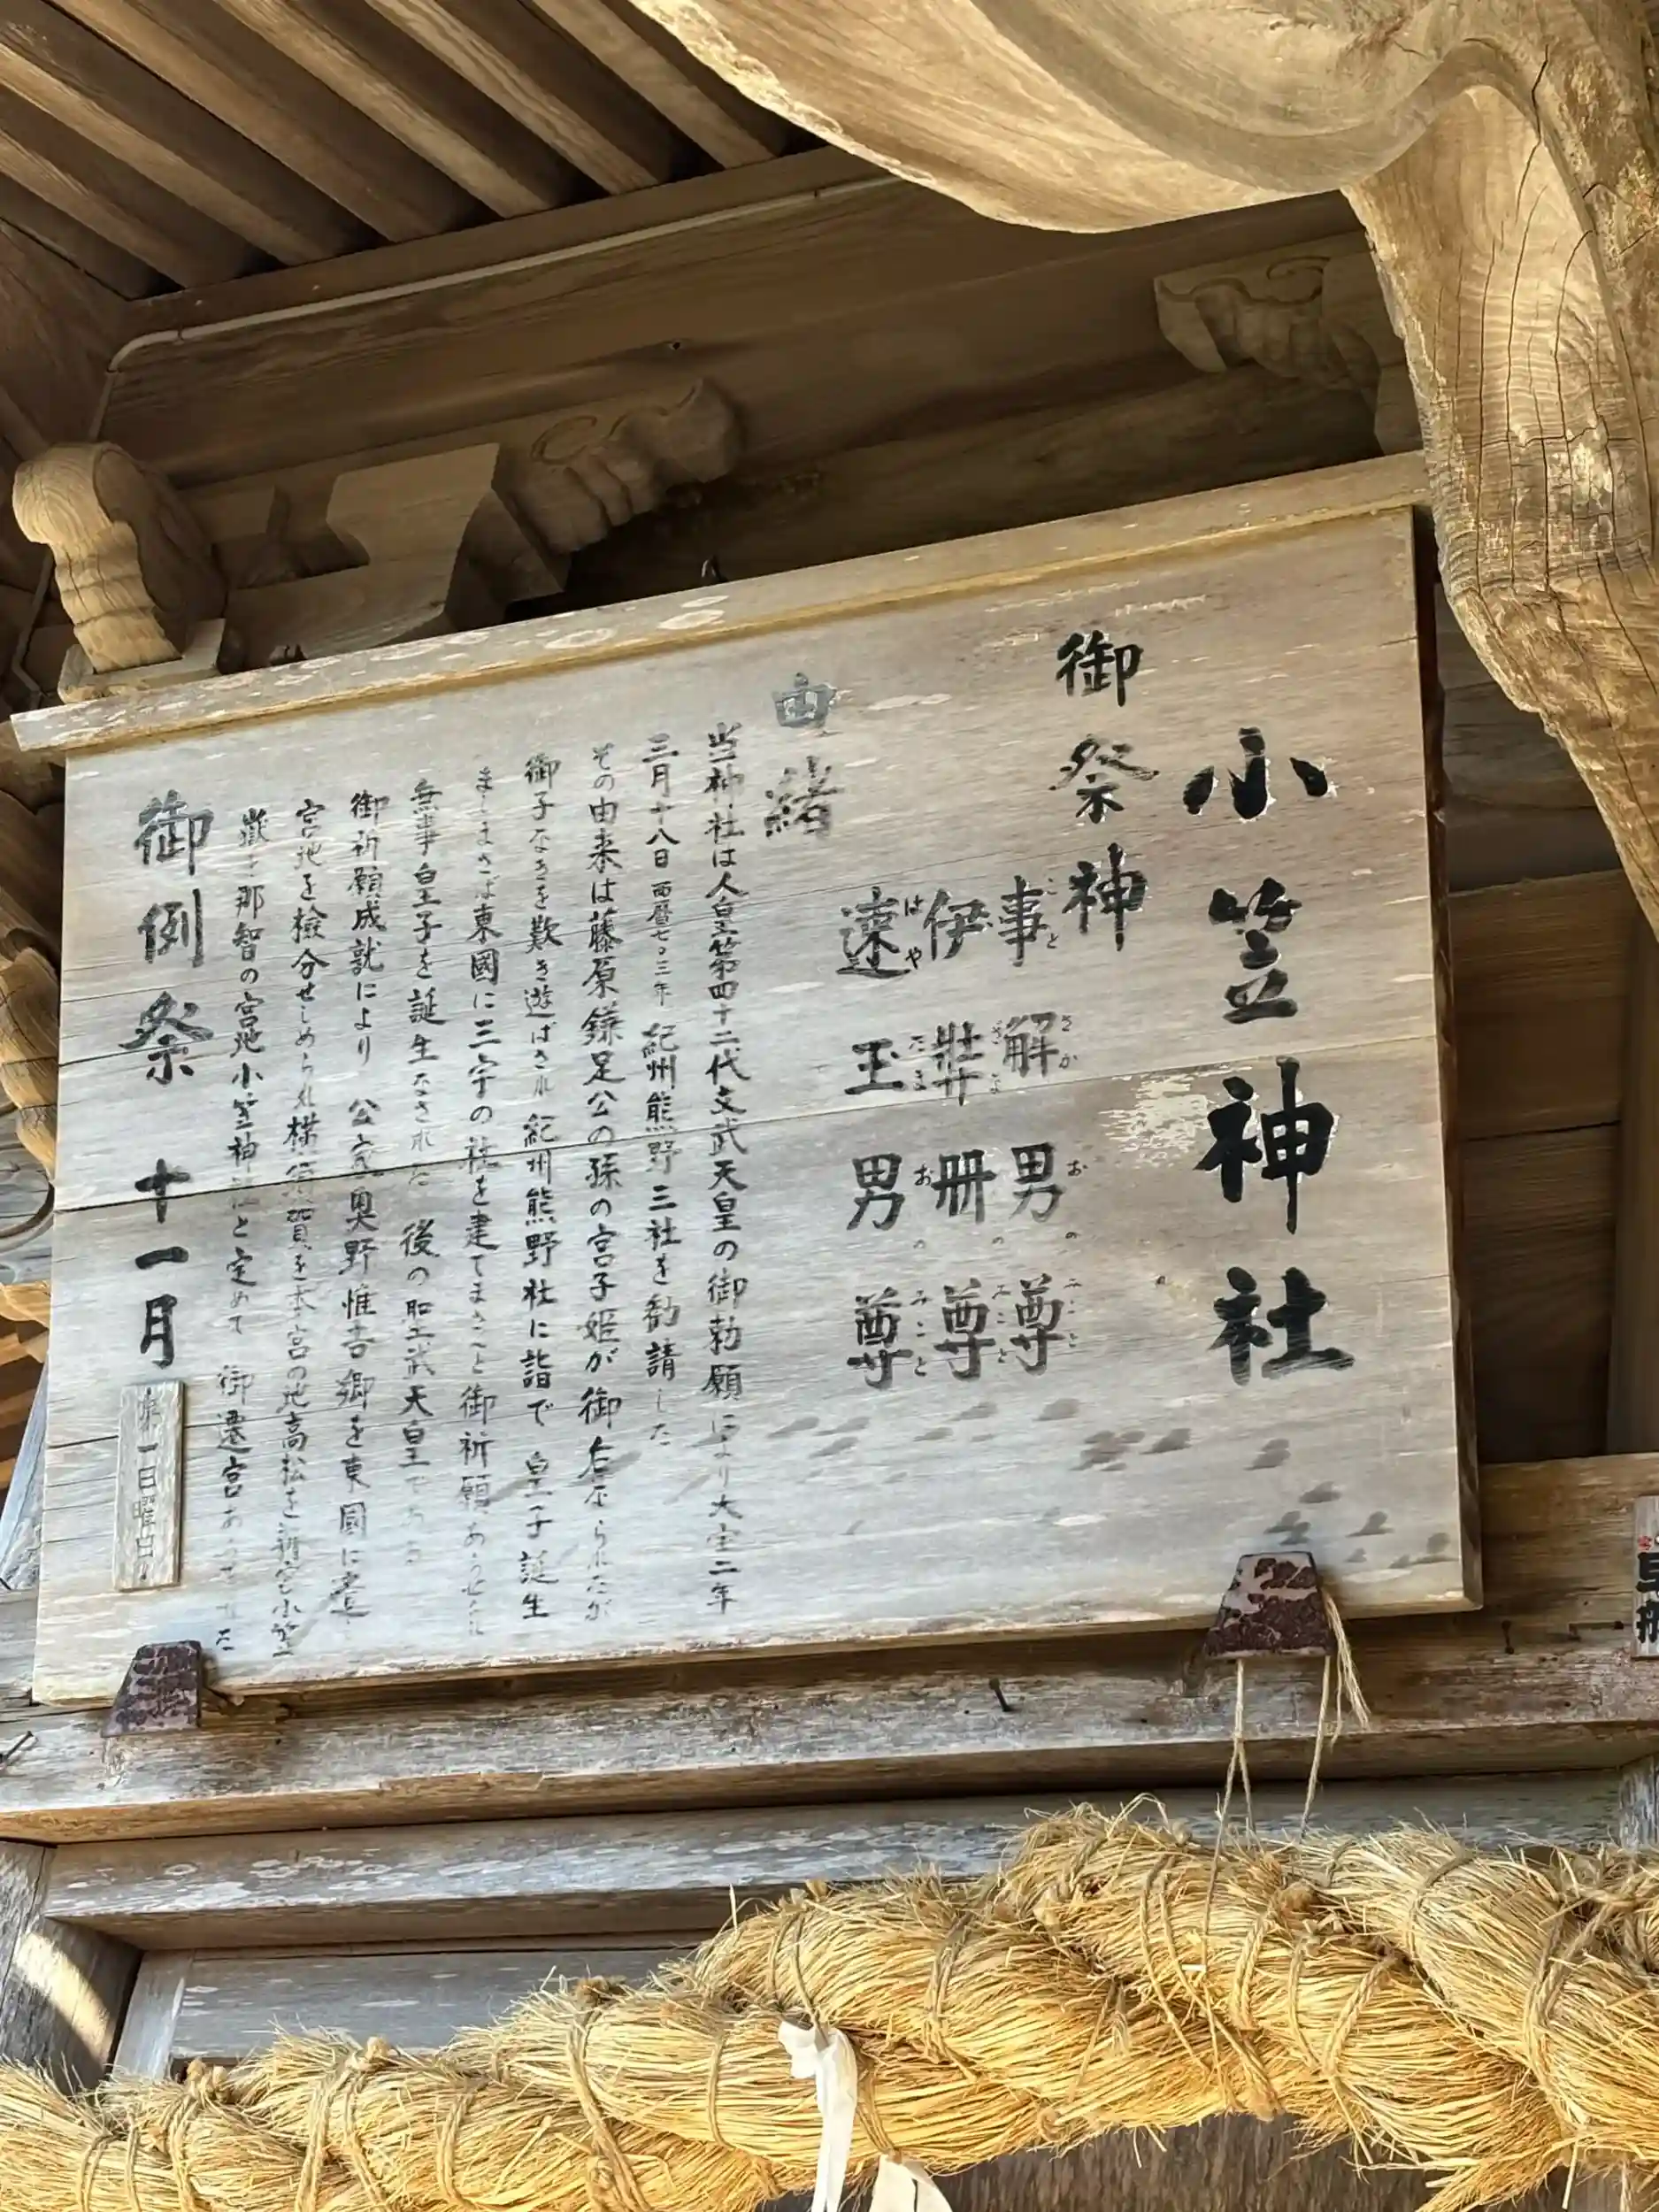 小笠神社
御祭神
事解男尊
こと さか おの みこと
伊弉冊尊
ざな みの みこと
速玉男尊
はや たま おの みこと
由緒
当神社は人皇第四十二代文武天皇の御勅願により大宝二年
三月十八日西暦七〇三年 紀州熊野三社を勧請した
その由来は藤原鎌足公の孫の宮子姫が御后
御子なきを歎き遊ばされ紀州熊野社に詣で 皇子誕生
ましまさば東國に三宇の社を建てまさむと御祈願あらせ
無事皇子を誕生なされた 後の聖武天皇である
御祈願成就により 公家奥野惟吉卿を東國に
宮地を検分せしめられ横須賀を本宮の地高松を新宮小笠
嶽を那智の宮地小笠神社と定めて 御遷宮あらせられた
御例祭 十一月
第一日曜日